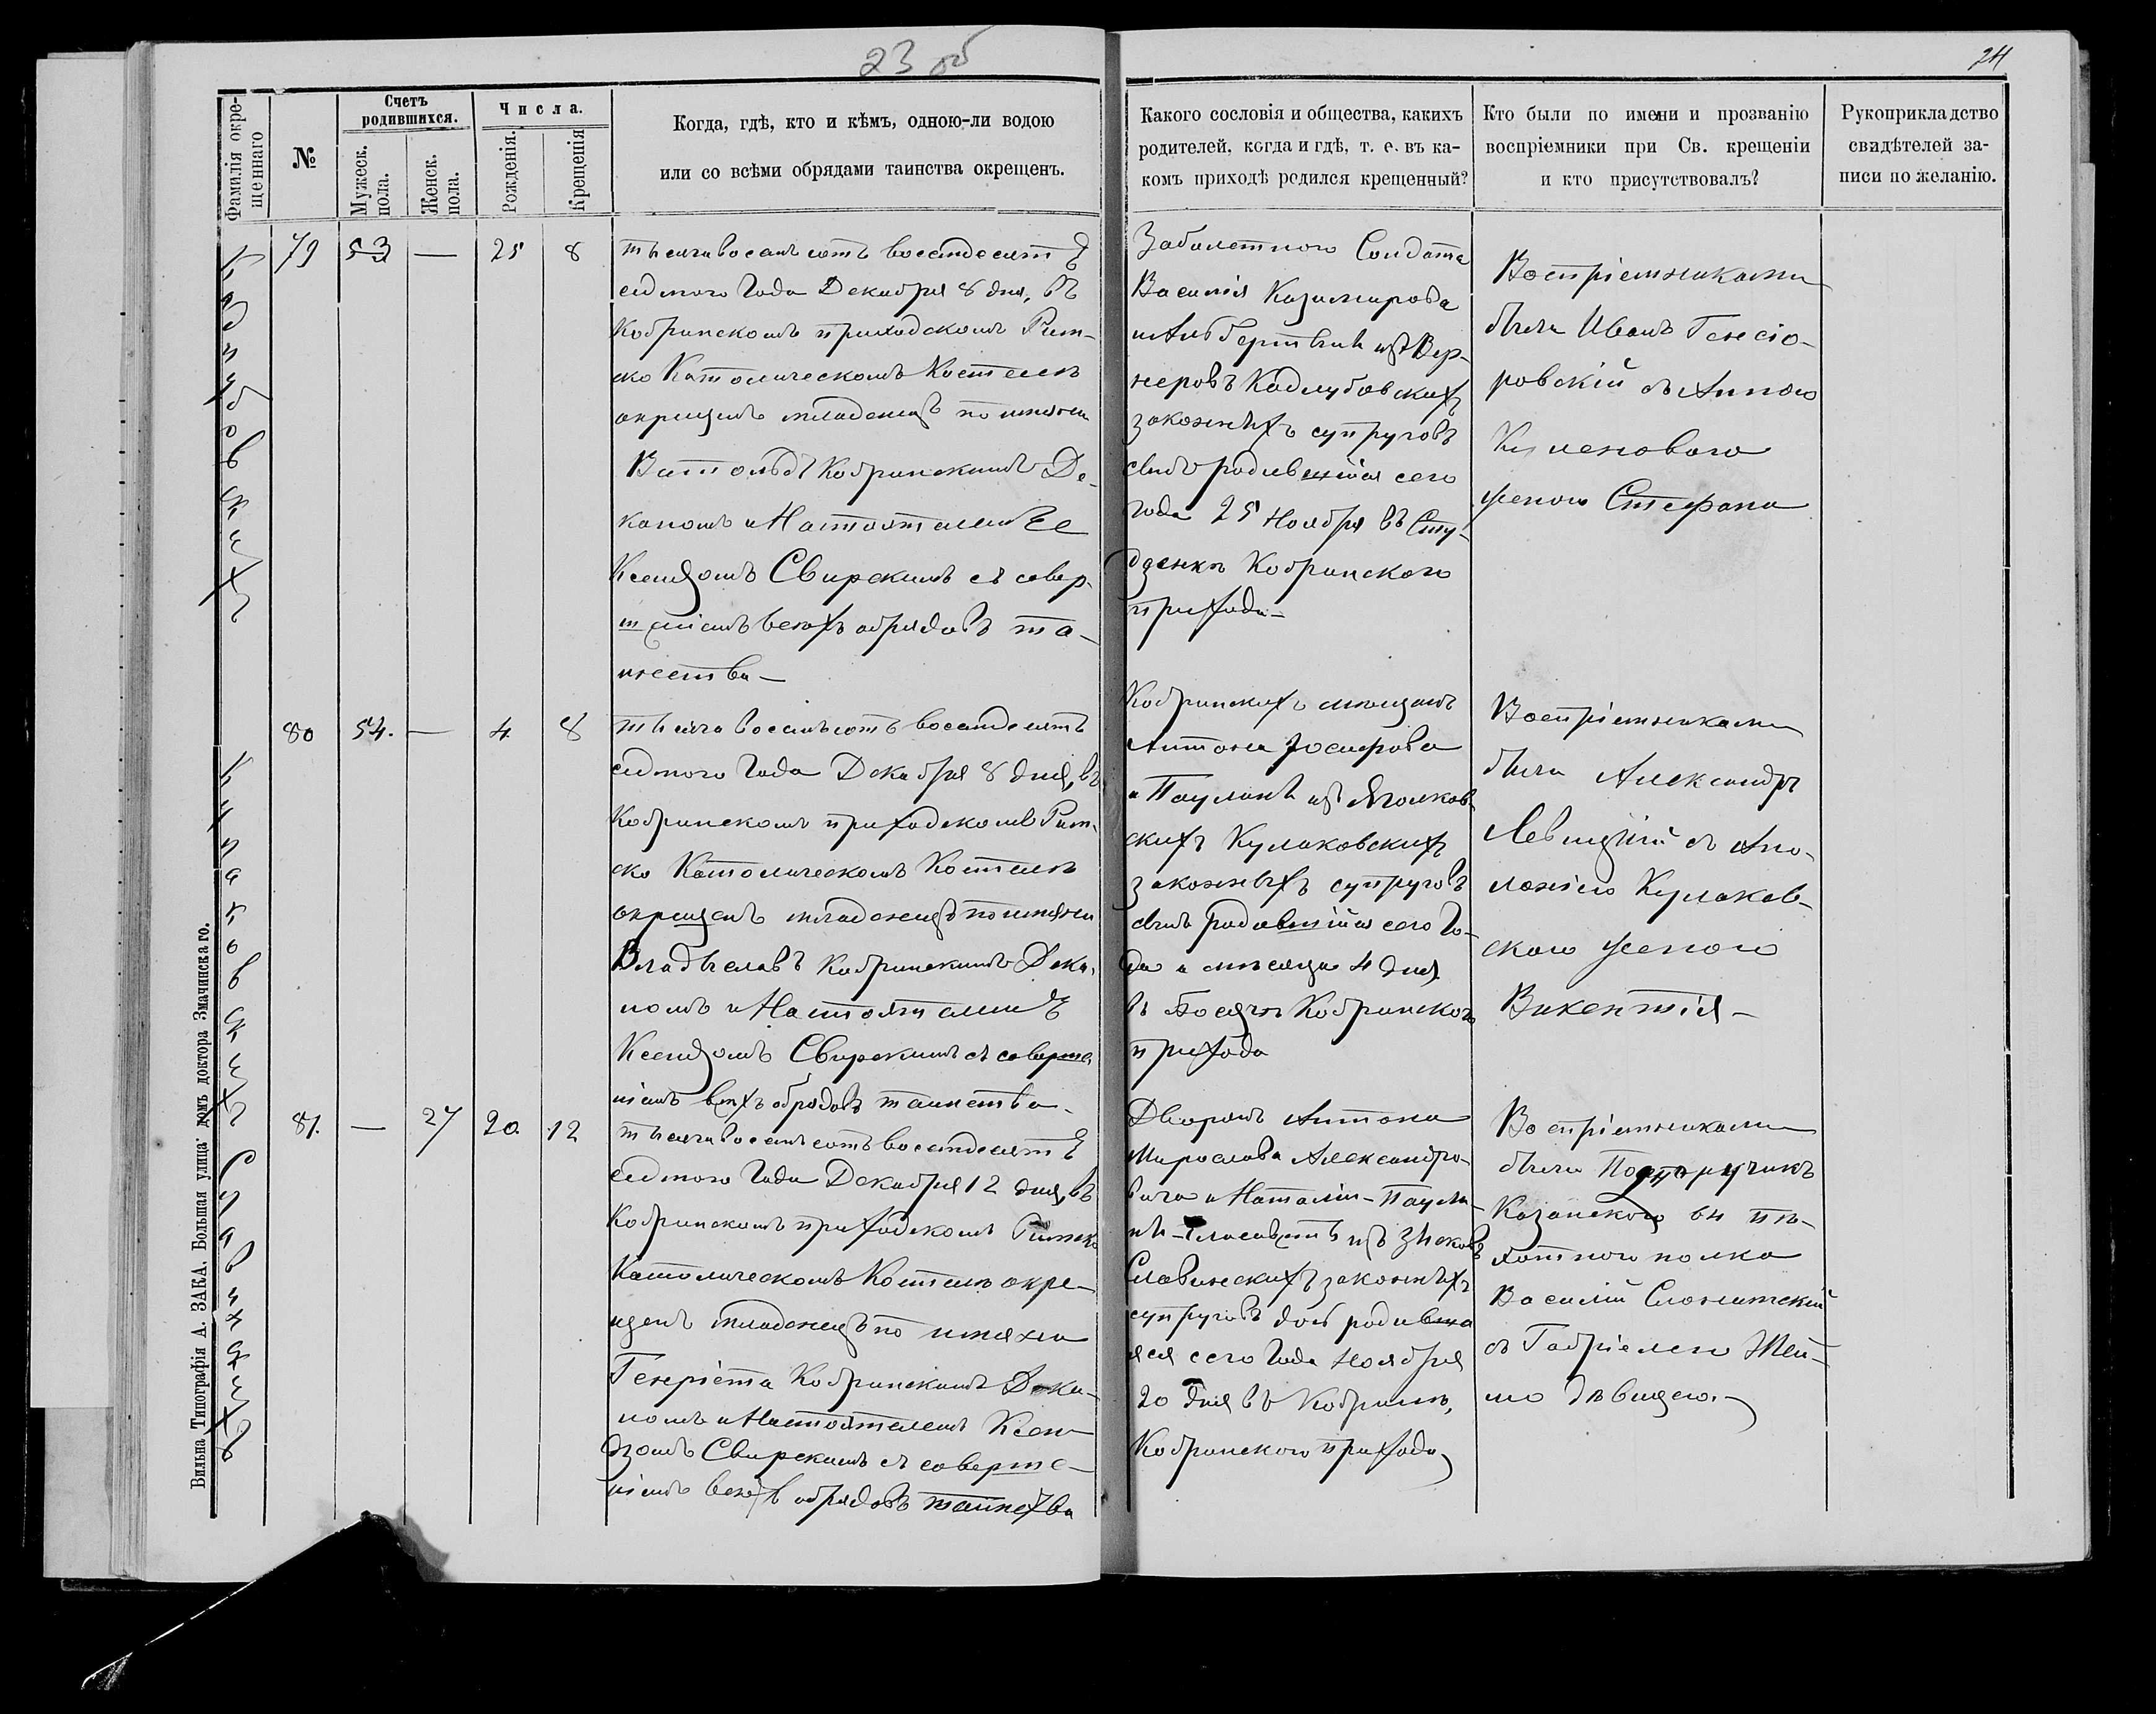 23 об
24
Фамилія окре-
щеннаго
№
Счетъ
родившихся.
Мужеск.
пола.
Женск.
пола.
Числа.
Рожденія.
Крещенія
Когда, гдѣ, кто и кѣмъ, одною-ли водою
или со всѣми обрядами таинства окрещенъ.
Какого сословія и общества, какихъ
родителей, когда и гдѣ, т. е. въ ка-
комъ приходѣ родился крещенный?
Кто были по имени и прозванію
воспріемники при Св. крещеніи
и кто присутствовалъ?
Рукоприкладство
свидѣтелей за-
писи по желанію.
Кадлубовскихъ
79 53 — 25 8
тысяча восемьсотъ восемдесятъ
седмого Года Декабря 8 дня, въ
Кобринскомъ приходскомъ Рим-
ско Католическомъ Костелѣ
окрещенъ младенецъ по имени
Витольдъ Кобринскимъ Де-
каномъ и Настоятелемъ
Ксендзомъ Свирскимъ съ совер-
шеніемъ всѣхъ обрядовъ та-
инства —
Забилетного Солдата
Василія Казимирова
и Альбертыны изъ Вер-
неровъ Кадлубовскихъ
законныхъ супруговъ
сынъ родившійся сего
года 25 Ноября въ Сту-
дзенкѣ Кобринского
прихода —
Воспріемниками
были Иванъ Генсіо-
ровскій съ Анною
женою Стефана
Кулаковскихъ
80 54. — 4 8
тысяча восемьсотъ восемдесятъ
седмого Года Декабря 8 дня, въ
Кобринскомъ приходскомъ Рим-
ско Католическомъ Костелѣ
окрещенъ младенецъ по имени
Владыславъ Кобринскимъ Дека-
номъ и Настоятелемъ
Ксендзомъ Свирскимъ съ соверше-
ніемъ всѣхъ обрядовъ таинства.
Кобринскихъ мѣщанъ
Антона Іосифова
и Паулины изъ Яголков-
скихъ Кулаковскихъ
законныхъ супруговъ
сынъ родившійся сего Го-
да и мѣсяца 4 дня
въ Кобринского
прихода
Воспріемниками
были Александръ
Левицкій съ Апо-
лоніею Кулаков-
скою женою
Викентія —
Славинскихъ
81. — 27 20. 12
тысяча восемьсотъ восемдесятъ
седмого Года Декабря 12 дня, въ
Кобринскомъ приходскомъ Римско
Католическомъ Костелѣ окре-
щенъ младенецъ по имени
Генріета Кобринскимъ Дека-
номъ и Настоятелемъ Ксен-
дзомъ Свирскимъ съ соверше-
ніемъ всѣхъ обрядовъ таинства
Дворянъ Антона
Мирослава Александро-
вича и Наталіи-Паули-
ны изъ
Славинскихъ законныхъ
супруговъ дочь родивша-
яся сего Года Ноября
20 дня въ Кобринѣ,
Кобринского прихода
Воспріемниками
были Подпоручикъ
Казанского 64 пѣ-
хотного полка
Василій Слонимскій
съ Габріелею Жей-
мо дѣвицею.—
Вильна Типографія А. ЗАКА. Большая улица домъ доктора Змачинскаго.